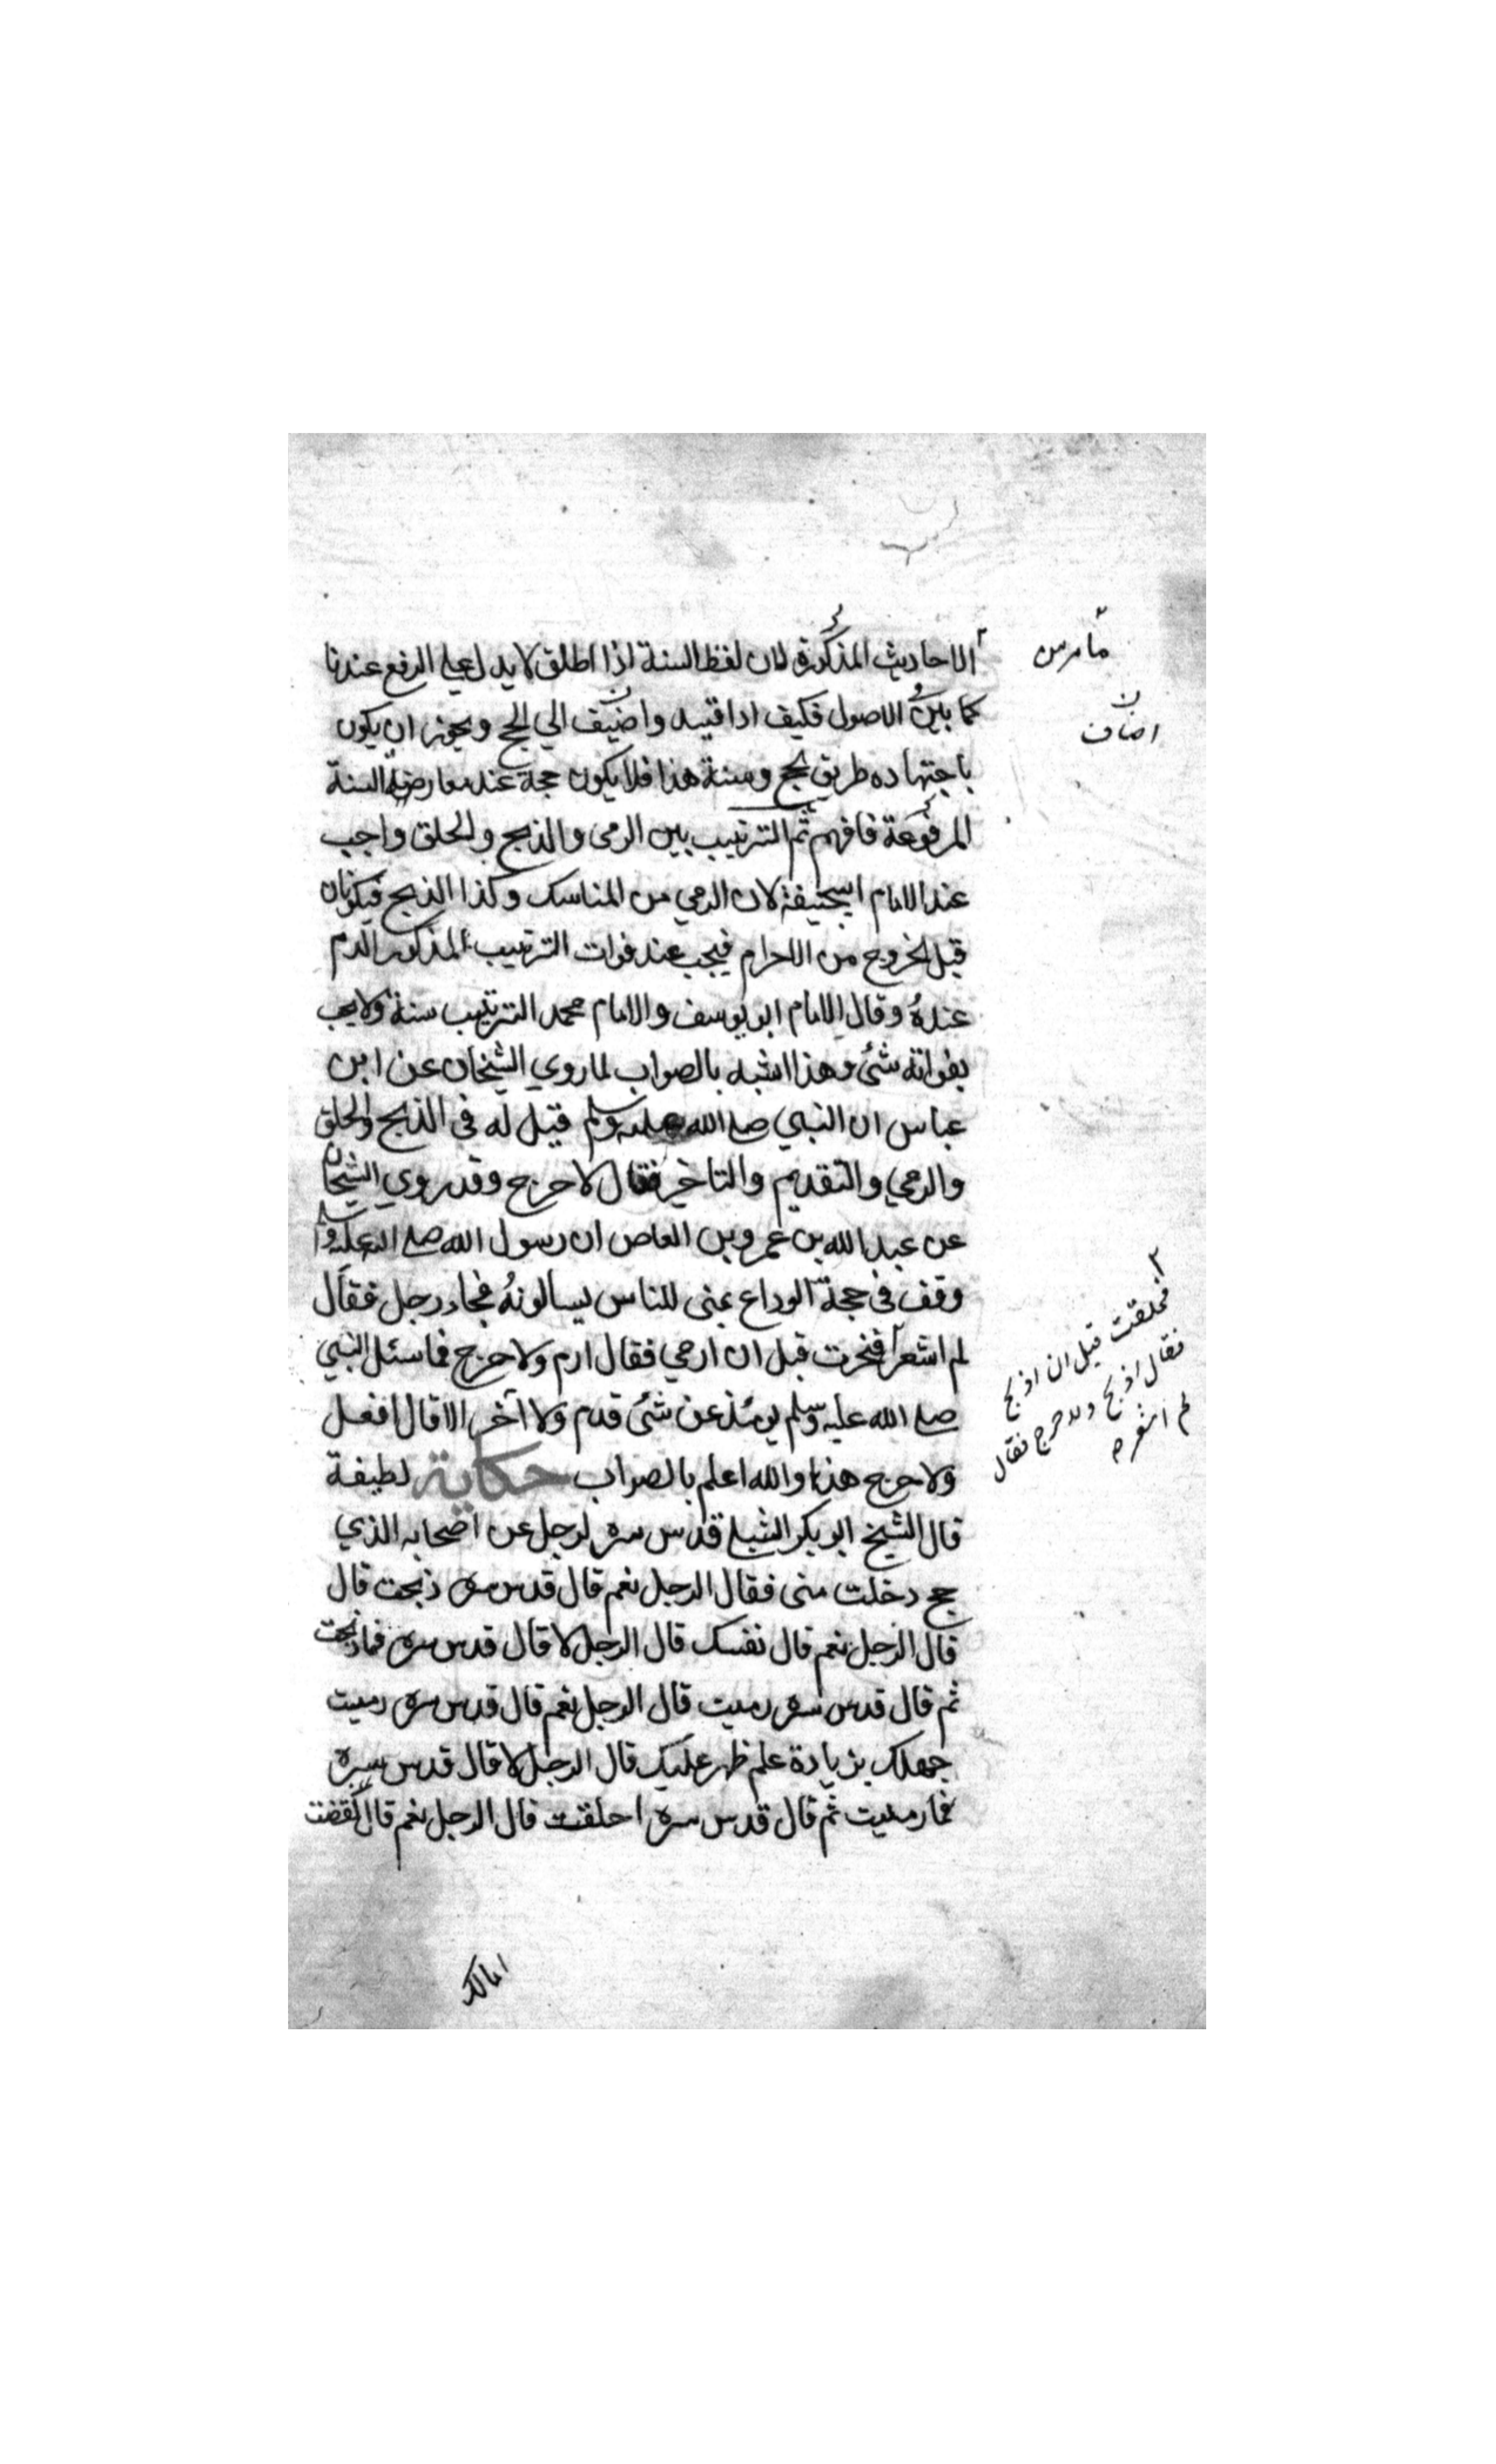 الاحاديث المذكورة لان لفظ السنة اذا اطلق لا يدل علي الرفع عندنا
كما بين الاصول فكيف اذا قيد واضيف الي الحج ويجوز ان يكون
باجتهاده طريق الحج وسنة هذا فلا يكون حجة عند معارضة السنة
المرفوعة فافهم ثم الترتيب بين الرمى والذبح والحلق واجب
عند الامام ابيحنيفة لان الرمي من المناسك وكذا الذبح فيكونان
قبل الخروج من الاحرام فيجب عند فوات الترتيب المذكور الدم
عنده وقال الامام ابو يوسف والامام محمد الترتيب سنة ولا يجب
بفواته شئ وهذا اشبه بالصواب لما روي الشيخان عن ابن
عباس ان النبي صلى الله عليه وسلم قيل له في الذبح والحلق
والرمي والتقديم والتاخير فقال لا حرج وقد روي الشيخان
عن عبد الله بن عمرو بن العاص ان رسول الله صلى الله عليه وسلم
وقف في حجة الوداع بمنى للناس يسالونه فجاء رجل فقال
لم اشعر فنحرت قبل ان ارمي فقال ارم ولا حرج فما سئل النبي
صلى الله عليه وسلم يومئذ عن شئ قدم ولا اخر الا قال افعل
ولا حرج هذا والله اعلم بالصواب حكاية لطيفة
قال الشيخ ابو بكر الشبلي قدس سره لرجل عن اصحابه الذي
حج دخلت منى فقال الرجل نعم قال قدس سره ذبحت قال
قال الرجل نعم قال نفسك قال الرجل لا قال قدس سره فما ذبحت
ثم قال قدس سره رميت قال الرجل نعم قال قدس سره رميت
جهلك بزيادة علم ظهر عليك قال الرجل لا قال قدس سره
فما رميت ثم قال قدس سره احلقت قال الرجل نعم قال نقضت
اضاف
فحلقت قبل ان اذبح
فقال اذبح ولا حرج فقال
لم اشعر
امالك